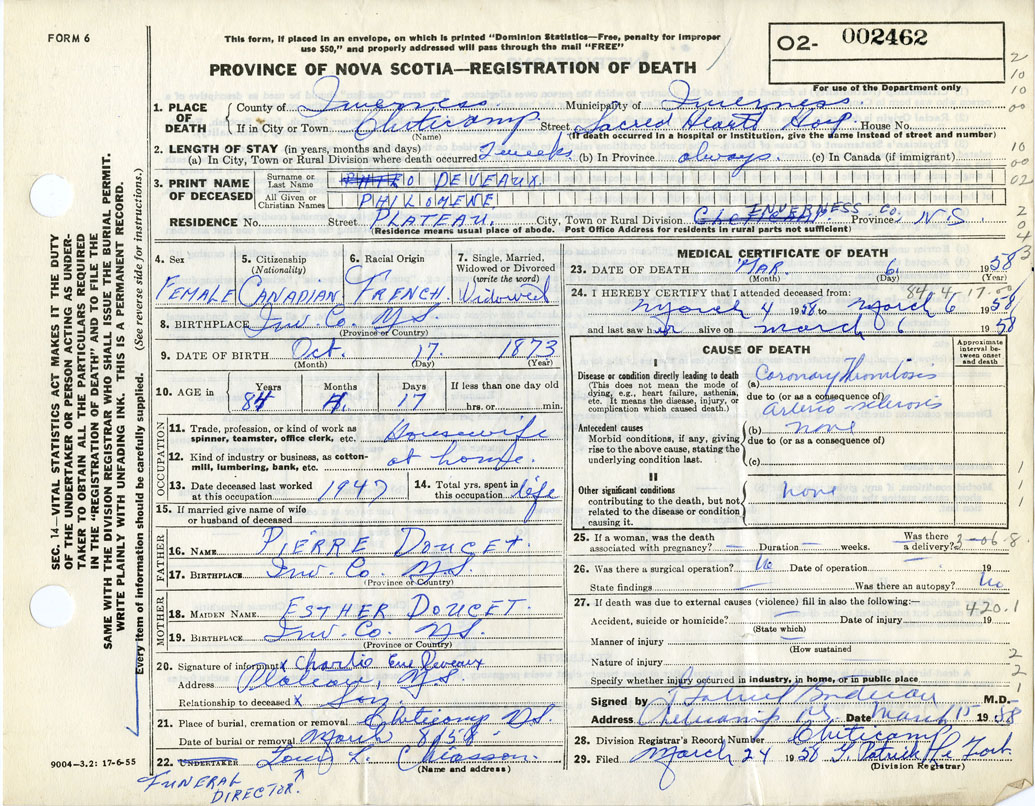 FORM 6
This form, if placed in an envelope, on which is printed "Dominion Statistics—Free, penalty for improper
use $50," and properly addressed will pass through the mail "FREE"
O2- 002462
PROVINCE OF NOVA SCOTIA—REGISTRATION OF DEATH
For use of the Department only
1. PLACE OF DEATH County of Inverness Municipality of Inverness
If in City or Town Cheticamp Street Sacred Heart Hosp House No.
(Name) (If death occurred in a hospital or institution, give the name instead of street and number)
2. LENGTH OF STAY (in years, months and days)
(a) In City, Town or Rural Division where death occurred 2 weeks (b) In Province always. (c) In Canada (if immigrant)
3. PRINT NAME OF DECEASED Surname or Last Name DEVEAUX
All Given or Christian Names PHILOMENE
RESIDENCE No. Street PLATEAU. City, Town or Rural Division INVERNESS CO. Province N.S
(Residence means usual place of abode. Post Office Address for residents in rural parts not sufficient)
4. Sex 5. Citizenship (Nationality) 6. Racial Origin 7. Single, Married, Widowed or Divorced (write the word)
FEMALE CANADIAN FRENCH Widowed
8. BIRTHPLACE Inv. Co. N.S.
(Province or Country)
9. DATE OF BIRTH Oct. 17. 1873
(Month) (Day) (Year)
10. AGE in Years Months Days If less than one day old
84 4. 17 hrs. or min.
OCCUPATION
11. Trade, profession or kind of work as spinner, teamster, office clerk, etc. Housewife
12. Kind of industry or business, as cotton-mill, lumbering, bank, etc. at home.
13. Date deceased last worked at this occupation 1947 14. Total yrs. spent in this occupation life
15. If married give name of wife or husband of deceased
FATHER
16. NAME PIERRE DOUCET
17. BIRTHPLACE Inv. Co N.S.
(Province or Country)
MOTHER
18. MAIDEN NAME ESTHER DOUCET.
19. BIRTHPLACE Inv. Co. N.S.
(Province or Country)
20. Signature of informant x Charlie Deveaux
Address Plateau, N.S.
Relationship to deceased x Son.
21. Place of burial, cremation or removal Cheticamp N.S.
Date of burial or removal March 8/58
22. UNDERTAKER Louis L. Chiasson
(Name and address)
FUNERAL DIRECTOR.
9004-3.2: 17-6-55
MEDICAL CERTIFICATE OF DEATH
23. DATE OF DEATH MAR. 6 1958
(Month) (Day) (Year)
84-4-17.00
24. I HEREBY CERTIFY that I attended deceased from:
March 4 1958 to March 6 1958
and last saw her alive on March 6 1958
CAUSE OF DEATH
Approximate interval between onset and death
I
Disease or condition directly leading to death
(This does not mean the mode of dying, e.g., heart failure, asthenia, etc. It means the disease, injury, or complication which caused death.)
(a) Coronary Thrombosis
due to (or as a consequence of)
arterio-sclerosis
Antecedent causes
Morbid conditions, if any, giving rise to the above cause, stating the underlying condition last.
(b) none
due to (or as a consequence of)
(c)
II
Other significant conditions
contributing to the death, but not related to the disease or condition causing it.
none
25. If a woman, was the death associated with pregnancy? — Duration — weeks. Was there a delivery? —
3-06-8.
26. Was there a surgical operation? No Date of operation — 19
State findings — Was there an autopsy? No
27. If death was due to external causes (violence) fill in also the following:—
420.1
Accident, suicide or homicide? — Date of injury 19
(State which)
Manner of injury —
(How sustained
Nature of injury
Specify whether injury occurred in industry, in home, or in public place
Signed by Gabriel Boudreau M.D.
Address Cheticamp Date March 15 1958
28. Division Registrar's Record Number Cheticamp
29. Filed March 24 1958 J. Patrick Le Fort
(Division Registrar)
SEC. 14—VITAL STATISTICS ACT MAKES IT THE DUTY
OF THE UNDERTAKER OR PERSON ACTING AS UNDER-
TAKER TO OBTAIN ALL THE PARTICULARS REQUIRED
IN THE "REGISTRATION OF DEATH" AND TO FILE THE
SAME WITH THE DIVISION REGISTRAR WHO SHALL ISSUE THE BURIAL PERMIT.
WRITE PLAINLY WITH UNFADING INK. THIS IS A PERMANENT RECORD.
Every item of information should be carefully supplied. (See reverse side for instructions.)